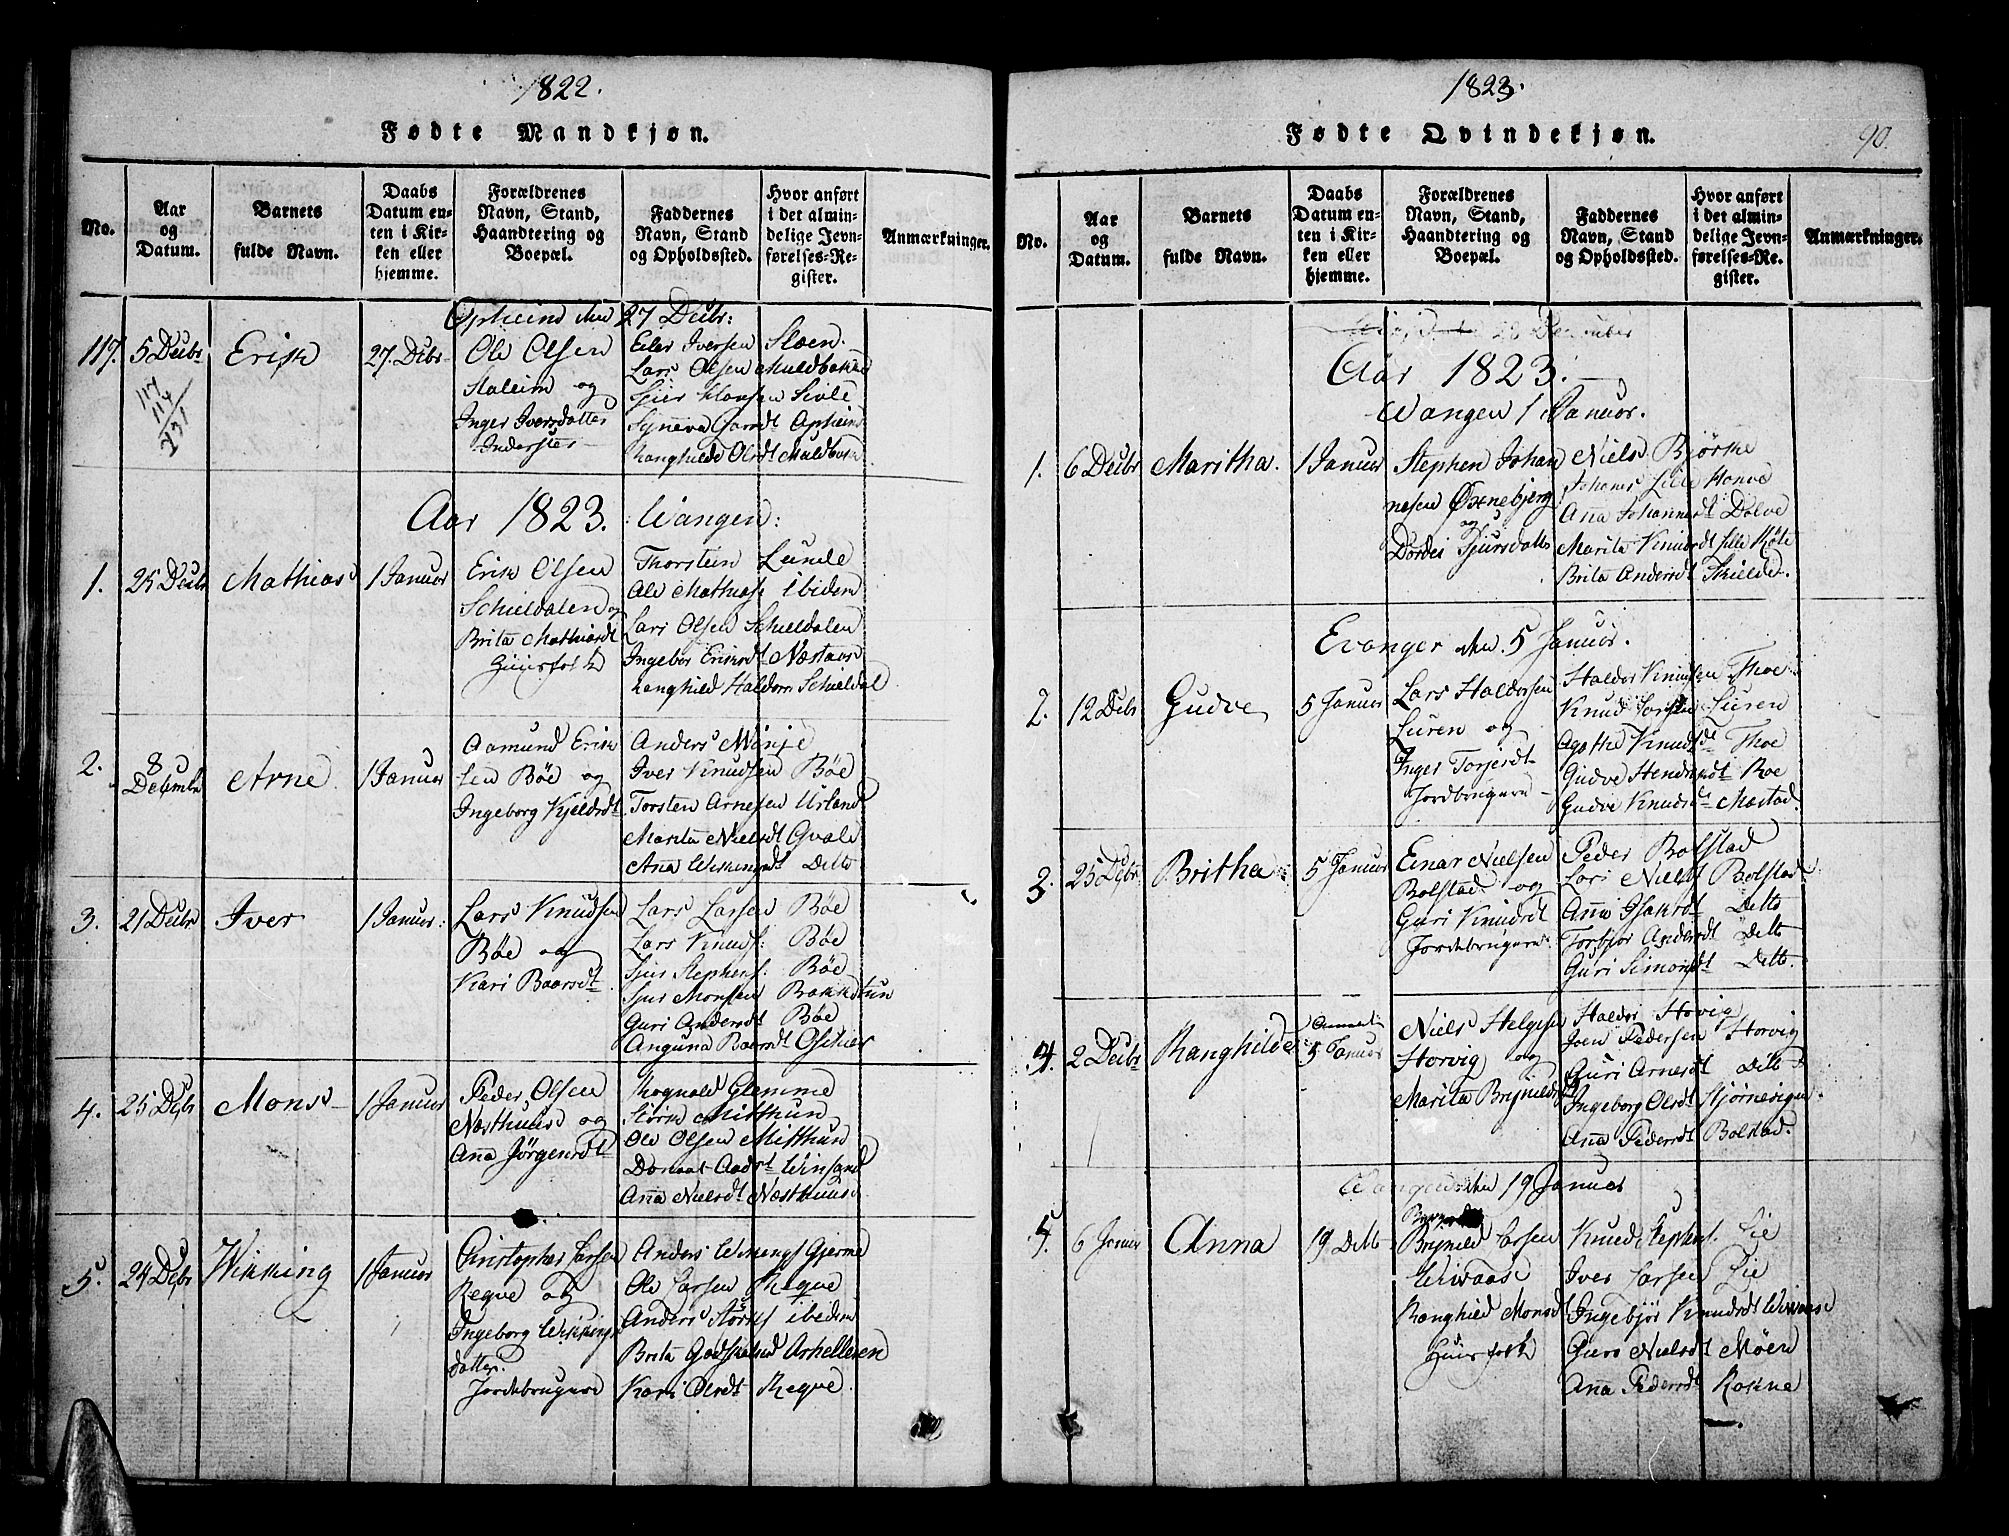 1822.
Fødte Mandkjøn.
No.
Aar
og
Datum.
Barnets
fulde Navn.
Daabs
Datum en-
ten i Kir-
ken eller
hjemme.
Forældrenes
Navn, Stand,
Haandtering og
Boepæl.
Faddernes
Navn, Stand
og Opholdssted.
Hvor anført
i det almin-
delige Jevn-
førelses-Re-
gister.
Anmærkninger.
Opheim den 27 Decbr:
117.
5 Decbr
117
114
231
Erik
27. Debr
Ole Olsen
Staleim og
Inger Iversdatter
Inderster
Eiler Iversen Slæen.
Lars Olsen Muldbaken
Sjur Monsen Sivle
Synneva Opheim
Ranghilde Olsdt Muldbak
Aar 1823. Wangen:
1.
25 Decbr
Mathias
1 Januar
Erik Olsen
Schieldalen og
Brita Mathiasdt
Huusfolk
Thorstein Lunde
Ole Mathias ibidem
Lars Olsen Schieldalen
Ingebor Eriksdt Næstaas
Ranghild Haldors Schieldal
2.
8
Decembr
Arne
1 Januar
Aamund Erik
sen Bøe og
Ingeborg Kjeldsdt
Anders Winje
Iver Knudsen Bøe
Torsten Arnesen Urland
Marita Nielsdt Qvale
Ana Wikingsdt Ditto
3.
21 Decbr
Iver
1 Januar:
Lars Knudsen
Bøe og
Kari Baarsdt
Lars Larsen Bøe
Lars Knuds: Bøe
Sjur Stephens: Bøe
Sjur Monsen Bakketun
Guri Andersdt Bøe
Anguna Baarsdt
4.
25 Debr
Mons
1 Januar
Peder Olsen
Næsthuus og
Ana Jørgensdt
Rognald Glemme
Størk Mitthun
Ole Olsen Mitthun
Winsand
Ana Nielsdt Næsthuus
5.
24 Debr
Wikking
1 Januar
Christopher Larsen
Reqve og
Ingeborg Wikkings
datter.
Jordebrugere
Anders Wikings Gjerme
Ole Larsen Reqve
Anders Størks ibidem
Brita Godskalksd Arhelleren
Kari Olsdt Reqve.
1823.
Fødte Qvindekjøn.
90.
No.
Aar
og
Datum.
Barnets
fulde Navn.
Daabs
Datum en-
ten i Kir-
ken eller
hjemme.
Forældrenes
Navn, Stand,
Haandtering og
Boepæl.
Faddernes
Navn, Stand
og Opholdssted.
Hvor anført
i det almin-
delige Jevn-
førelses-Re-
gister.
Anmærkninger.
December
Aar 1823.
Wangen 1 Januar.
1.
6 Decbr
Maritha.
1 Januar
Stephen Johan
nesen Øxnebjerg
og
Dordei Sjursdatter
Niels Bjørke
Johanes Lille Honve
Ana Johannesdt Dolve
Marita Knudsdt Lille Røte
Brita Andersdt Skielde.
Evanger den 5 Januar.
2.
12 Debr
Gudve
5 Januar
Lars Haldorsen
Luren og
Inger Torjersdt
Jordbrugere
Haldor Knudsen Thoe
Knud Luren
Agathe Knudsdt Thoe
Gudve Roe
Gudve Knudsdt Mæstad.
3.
25 Debr
Britha
5 Januar
Einar Nielsen
Bolstad og
Guri Knudsdt
Jordebrugere.
Peder Bolstad
Lars Niels Bolstad
Ana Isaksdt Ditto
Torbjør Andersdt Ditto
Guri Simonsdt Ditto.
4.
2 Decbr
Ranghilde
5 Januar
Niels Helgesen
Horvig og
Marita Brynildsdt
Haldor Horvig
Joen Pedersen Horvig
Guri Arnesdt Ditto
Ingeborg Olsdt Stjørnevigen
Ana Pedersdt Bolstad.
Wangen den 19 Januar
5.
6 Januar
Anna
19 Ditto
Brynild Larsen
Wivaase
Ranghild Monsdt
Huusfolk
Knud Stephens. Lie
Iver Larsen Lie
Ingebjør Knudsdt Wivaase
Guro Nielsdt Møen
Ana Pedersdt Rokne